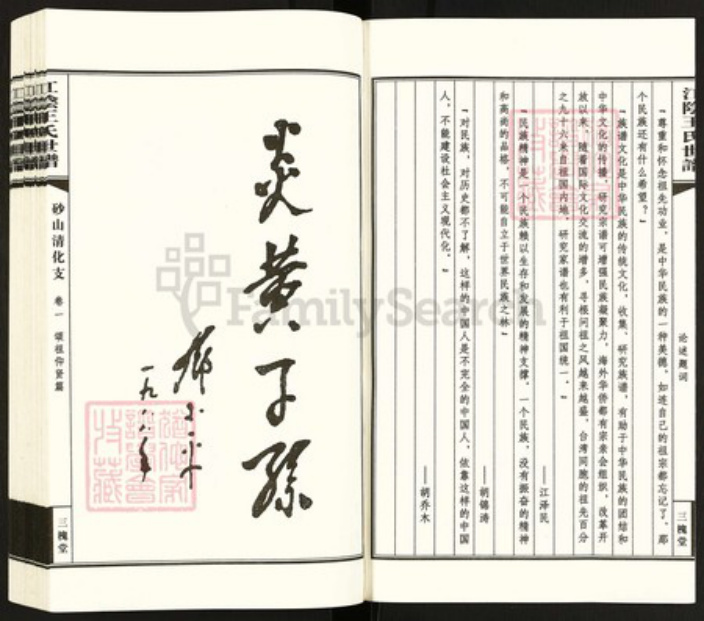 江阴王氏世谱
论述题词
三槐堂
“尊重和怀念祖先功业，是中华民族的一种美德，如连自己的祖宗都忘记了，那
个民族还有什么希望？”
“族谱文化是中华民族的传统文化，收集、研究族谱，有助于中华民族的团结和
中华文化的传播，研究宗谱可增强民族凝聚力，海外华侨都有宗亲会组织，改革开
放以来，随着国际文化交流的增多，寻根问祖之风越来越盛，台湾同胞的祖先百分
之九十六来自祖国内地，研究家谱也有利于祖国统一。”
——江泽民
“民族精神是一个民族赖以生存和发展的精神支撑，一个民族，没有振奋的精神
和高尚的品格，不可能自立于世界民族之林”
——胡锦涛
“对民族，对历史都不了解，这样的中国人是不完全的中国人，依靠这样的中国
人，不能建设社会主义现代化。”
——胡乔木
炎黄子孙
邓小平
一九八八年
江阴王氏世谱
砂山清化支
卷一
颂祖仰贤篇
三槐堂
FamilySearch